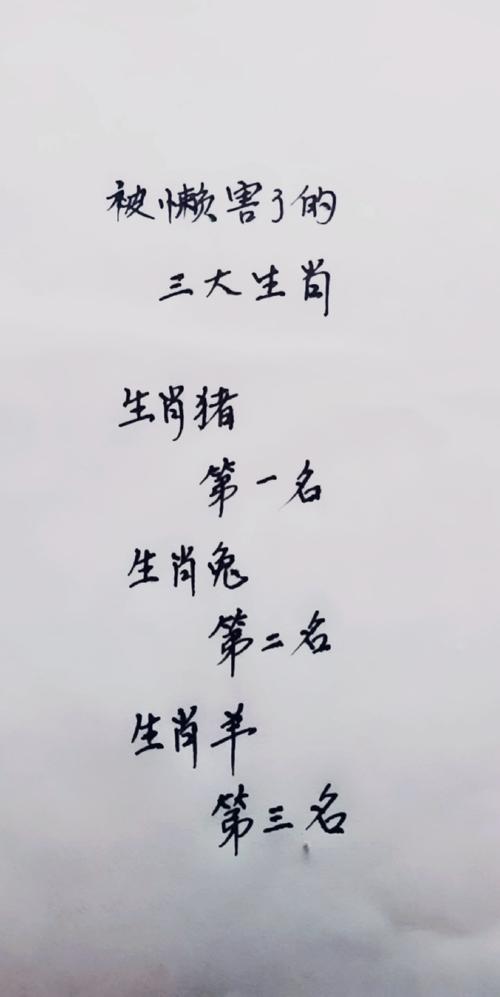 被懒害了的
三大生肖
生肖猪
第一名
生肖兔
第二名
生肖羊
第三名